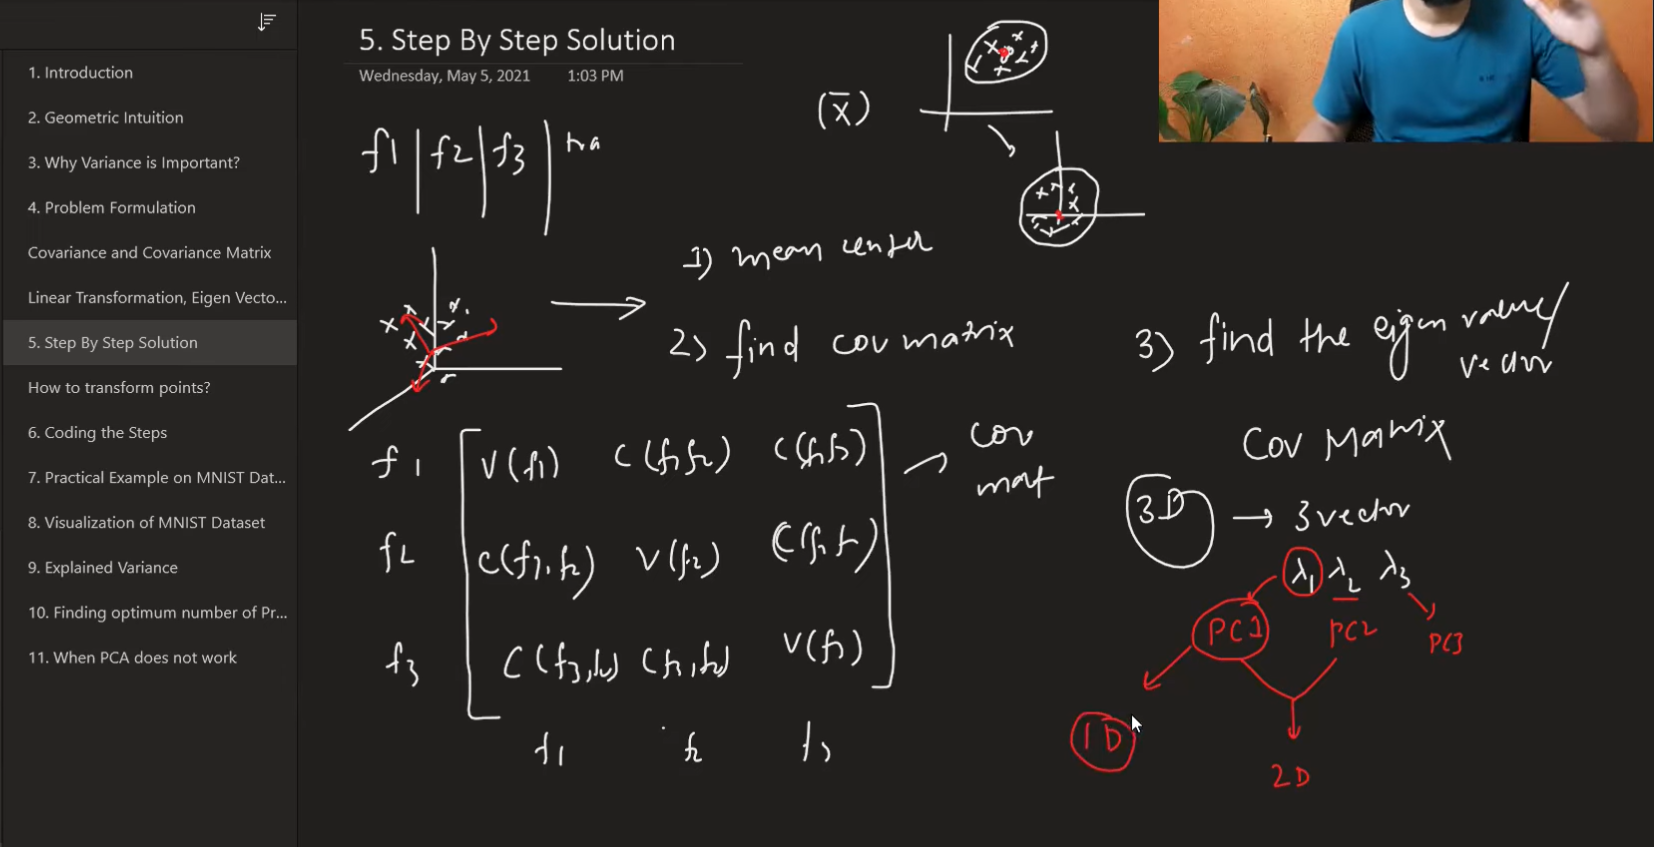 1. Introduction
2. Geometric Intuition
3. Why Variance is Important?
4. Problem Formulation
Covariance and Covariance Matrix
Linear Transformation, Eigen Vecto...
5. Step By Step Solution
How to transform points?
6. Coding the Steps
7. Practical Example on MNIST Dat...
8. Visualization of MNIST Dataset
9. Explained Variance
10. Finding optimum number of Pr...
11. When PCA does not work
5. Step By Step Solution
Wednesday, May 5, 2021 1:03 PM
(x̄)
f1 f2 f3
1) mean center
2) find cov matrix
3) find the eigen value/
vector
f1 V(f1) C(f1f2) C(f1f3)
cov
mat
f2 C(f1,f2) V(f2)
f3 V(f3)
f1 f2 f3
Cov Matrix
3D → 3 vector
λ1 λ2 λ3
PC1 PC2 PC3
1D
2D